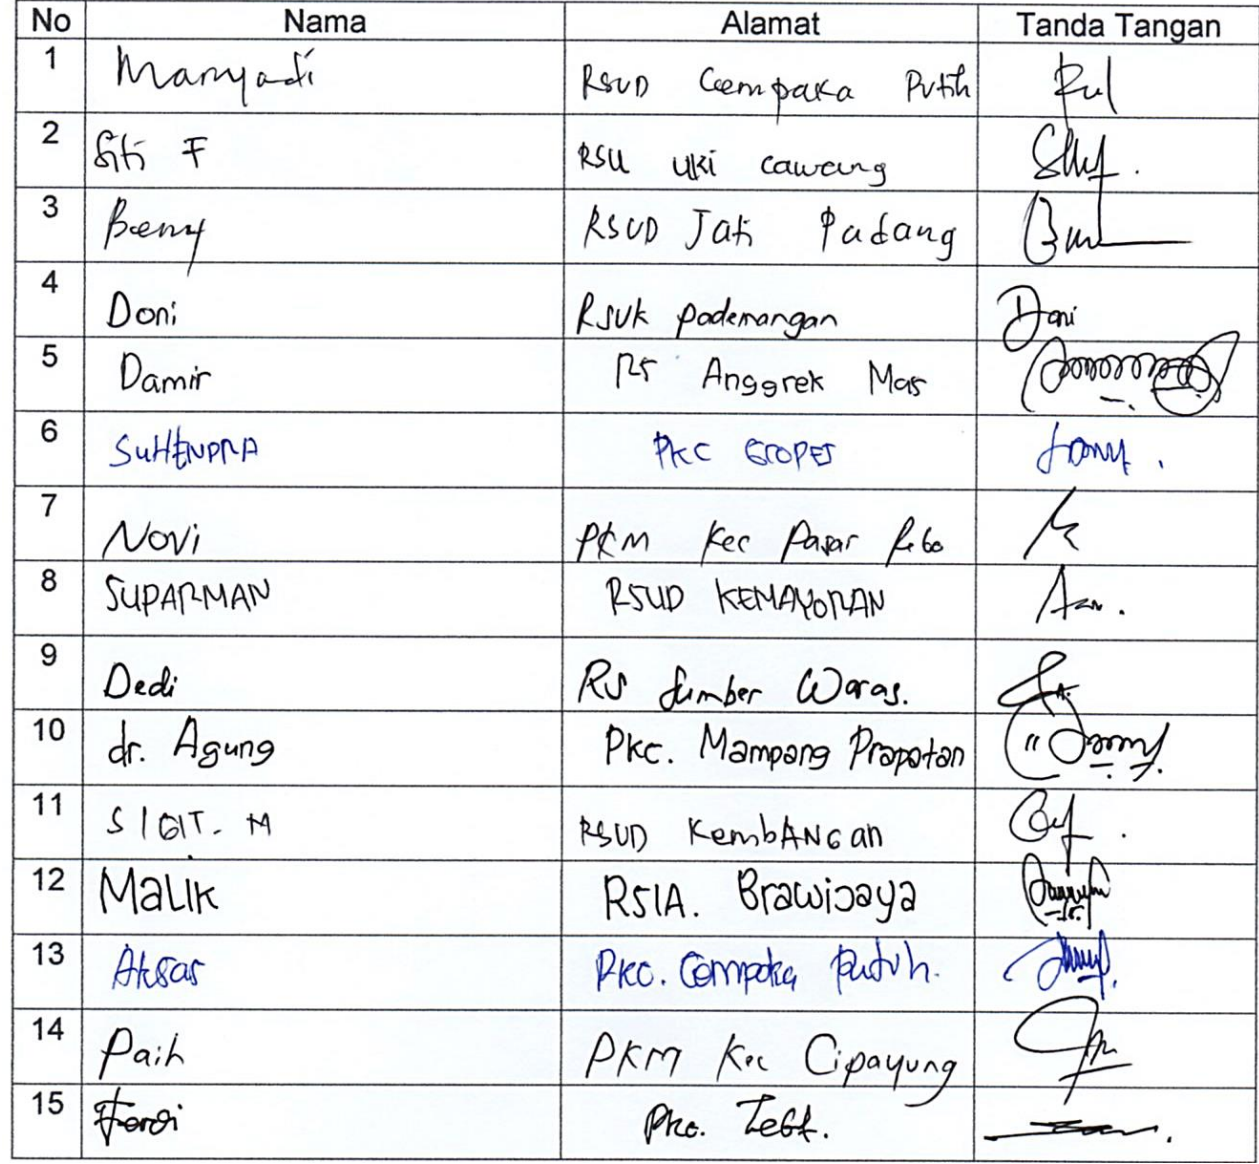 No Nama Alamat Tanda Tangan
1 Maryadi RSUD Cempaka Putih
2 Siti F RSU UKI cawang
3 Beny RSUD Jati Padang
4 Doni RSUK pademangan Doni
5 Damir RS Anggrek Mas
6 SUHENDRA PKC GROPET
7 Novi PKM Kec Pasar Rebo
8 SUPARMAN RSUD KEMAYORAN
9 Dedi RS Sumber Waras.
10 dr. Agung PKC. Mampang Prapatan
11 SIGIT. M RSUD KembANGan
12 MaLIK RSIA. Brawijaya
13 Aksar PKC. Cempaka Putih.
14 Paih PKM Kec Cipayung
15 Ferdi PKC. Tebt.